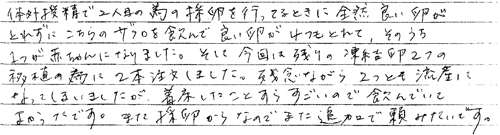 体外授精で2人目の為の採卵を行ってるときに全然良い卵が
とれずにこちらのザクロを飲んで良い卵が4つもとれて、そのうち
1つが赤ちゃんになりました。そして今回は残りの凍結卵2つの
移植の為に2本注文しました。残念ながら2つとも流産に
なってしまいましたが、着床したことすらすごいので飲んでいて
よかったです。また採卵からなのでまた追加で頼みたいです。